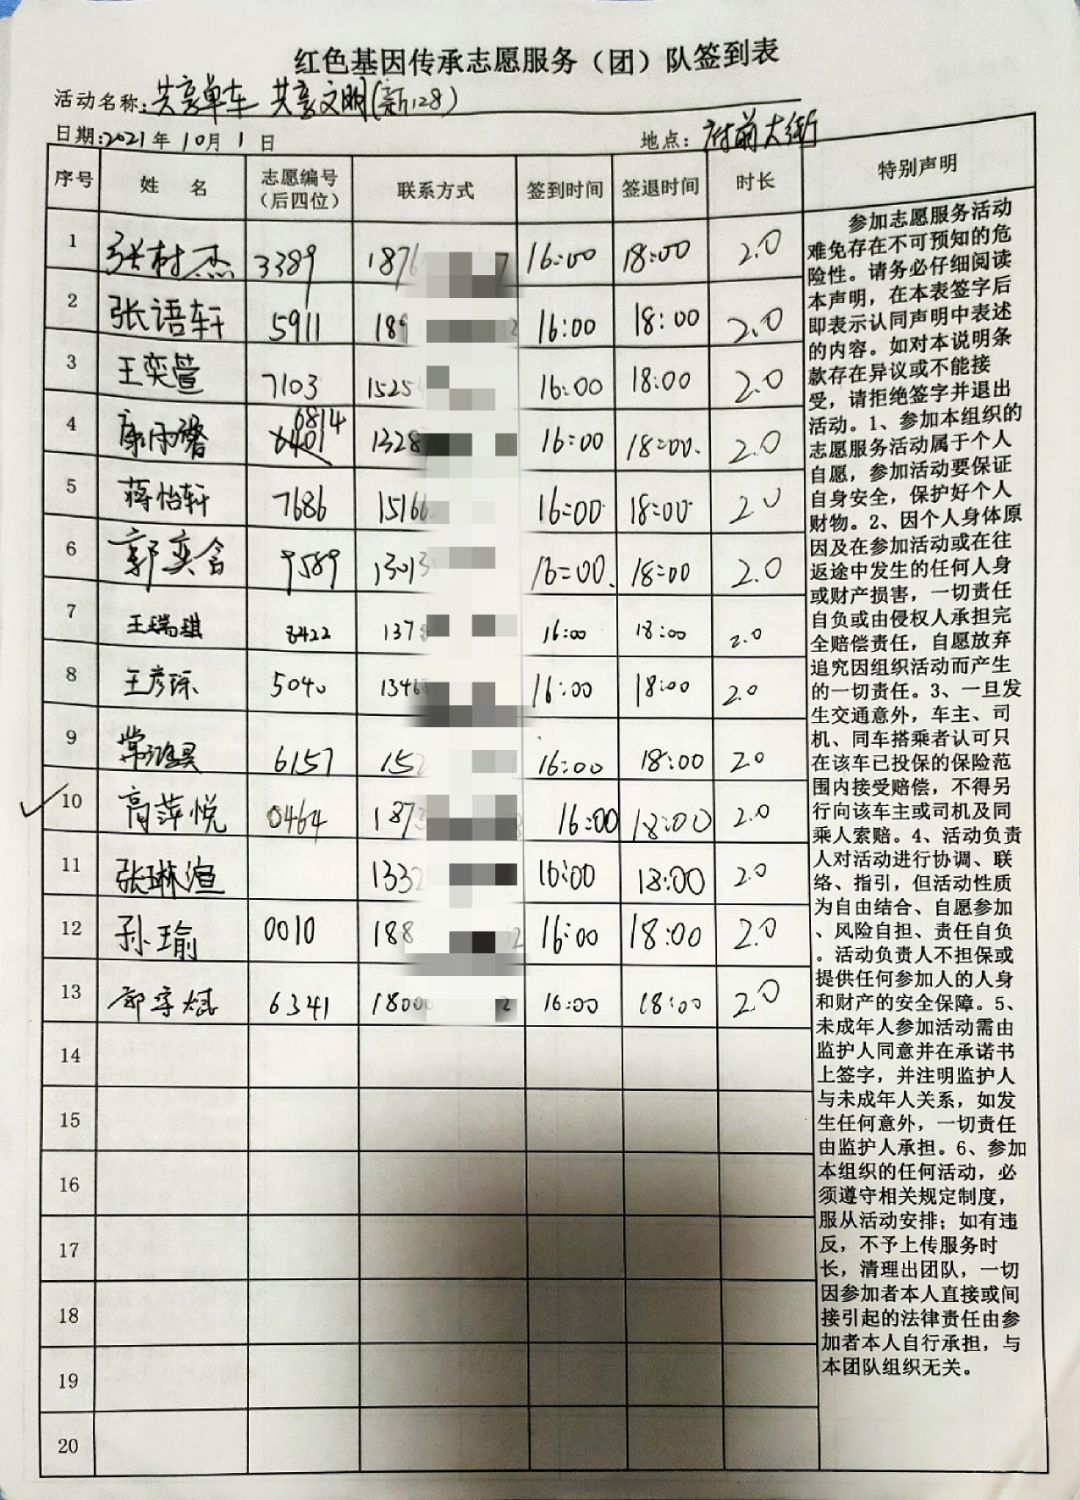 红色基因传承志愿服务（团）队签到表
活动名称：共享单车 共享文明(新128)
日期：2021年 10月 1 日 地点：府前大街
序号 姓 名 志愿编号（后四位） 联系方式 签到时间 签退时间 时长 特别声明
1 张材杰 3389 1876 7 16:00 18:00 2.0
2 张语轩 5911 189 2 16:00 18:00 2.0
3 王奕萱 7103 1525 16:00 18:00 2.0
4 6814 1328 16:00 18:00. 2.0
5 蒋怡轩 7686 15166 16:00 18:00 2.0
6 郭奕含 9589 13013 16:00. 18:00 2.0
7 王瑞琪 8422 137 16:00 18:00 2.0
8 王彦琛 5040 1346 16:00 18:00 2.0
9 常鸿昊 6157 152 16:00 18:00 2.0
10 高萍悦 0464 187 16:00 18:00 2.0
11 张琳渲 1332 16:00 18:00 2.0
12 孙瑜 0010 188 2 16:00 18:00 2.0
13 6341 1800 2 16:00 18:00 2.0
14
15
16
17
18
19
20
参加志愿服务活动
难免存在不可预知的危
险性。请务必仔细阅读
本声明，在本表签字后
即表示认同声明中表述
的内容。如对本说明条
款存在异议或不能接
受，请拒绝签字并退出
活动。1、参加本组织的
志愿服务活动属于个人
自愿，参加活动要保证
自身安全，保护好个人
财物。2、因个人身体原
因及在参加活动或在往
返途中发生的任何人身
或财产损害，一切责任
自负或由侵权人承担完
全赔偿责任，自愿放弃
追究因组织活动而产生
的一切责任。3、一旦发
生交通意外，车主、司
机、同车搭乘者认可只
在该车已投保的保险范
围内接受赔偿，不得另
行向该车主或司机及同
乘人索赔。4、活动负责
人对活动进行协调、联
络、指引，但活动性质
为自由结合、自愿参加
、风险自担、责任自负
。活动负责人不担保或
提供任何参加人的人身
和财产的安全保障。5、
未成年人参加活动需由
监护人同意并在承诺书
上签字，并注明监护人
与未成年人关系，如发
生任何意外，一切责任
由监护人承担。6、参加
本组织的任何活动，必
须遵守相关规定制度，
服从活动安排；如有违
反，不予上传服务时
长，清理出团队，一切
因参加者本人直接或间
接引起的法律责任由参
加者本人自行承担，与
本团队组织无关。